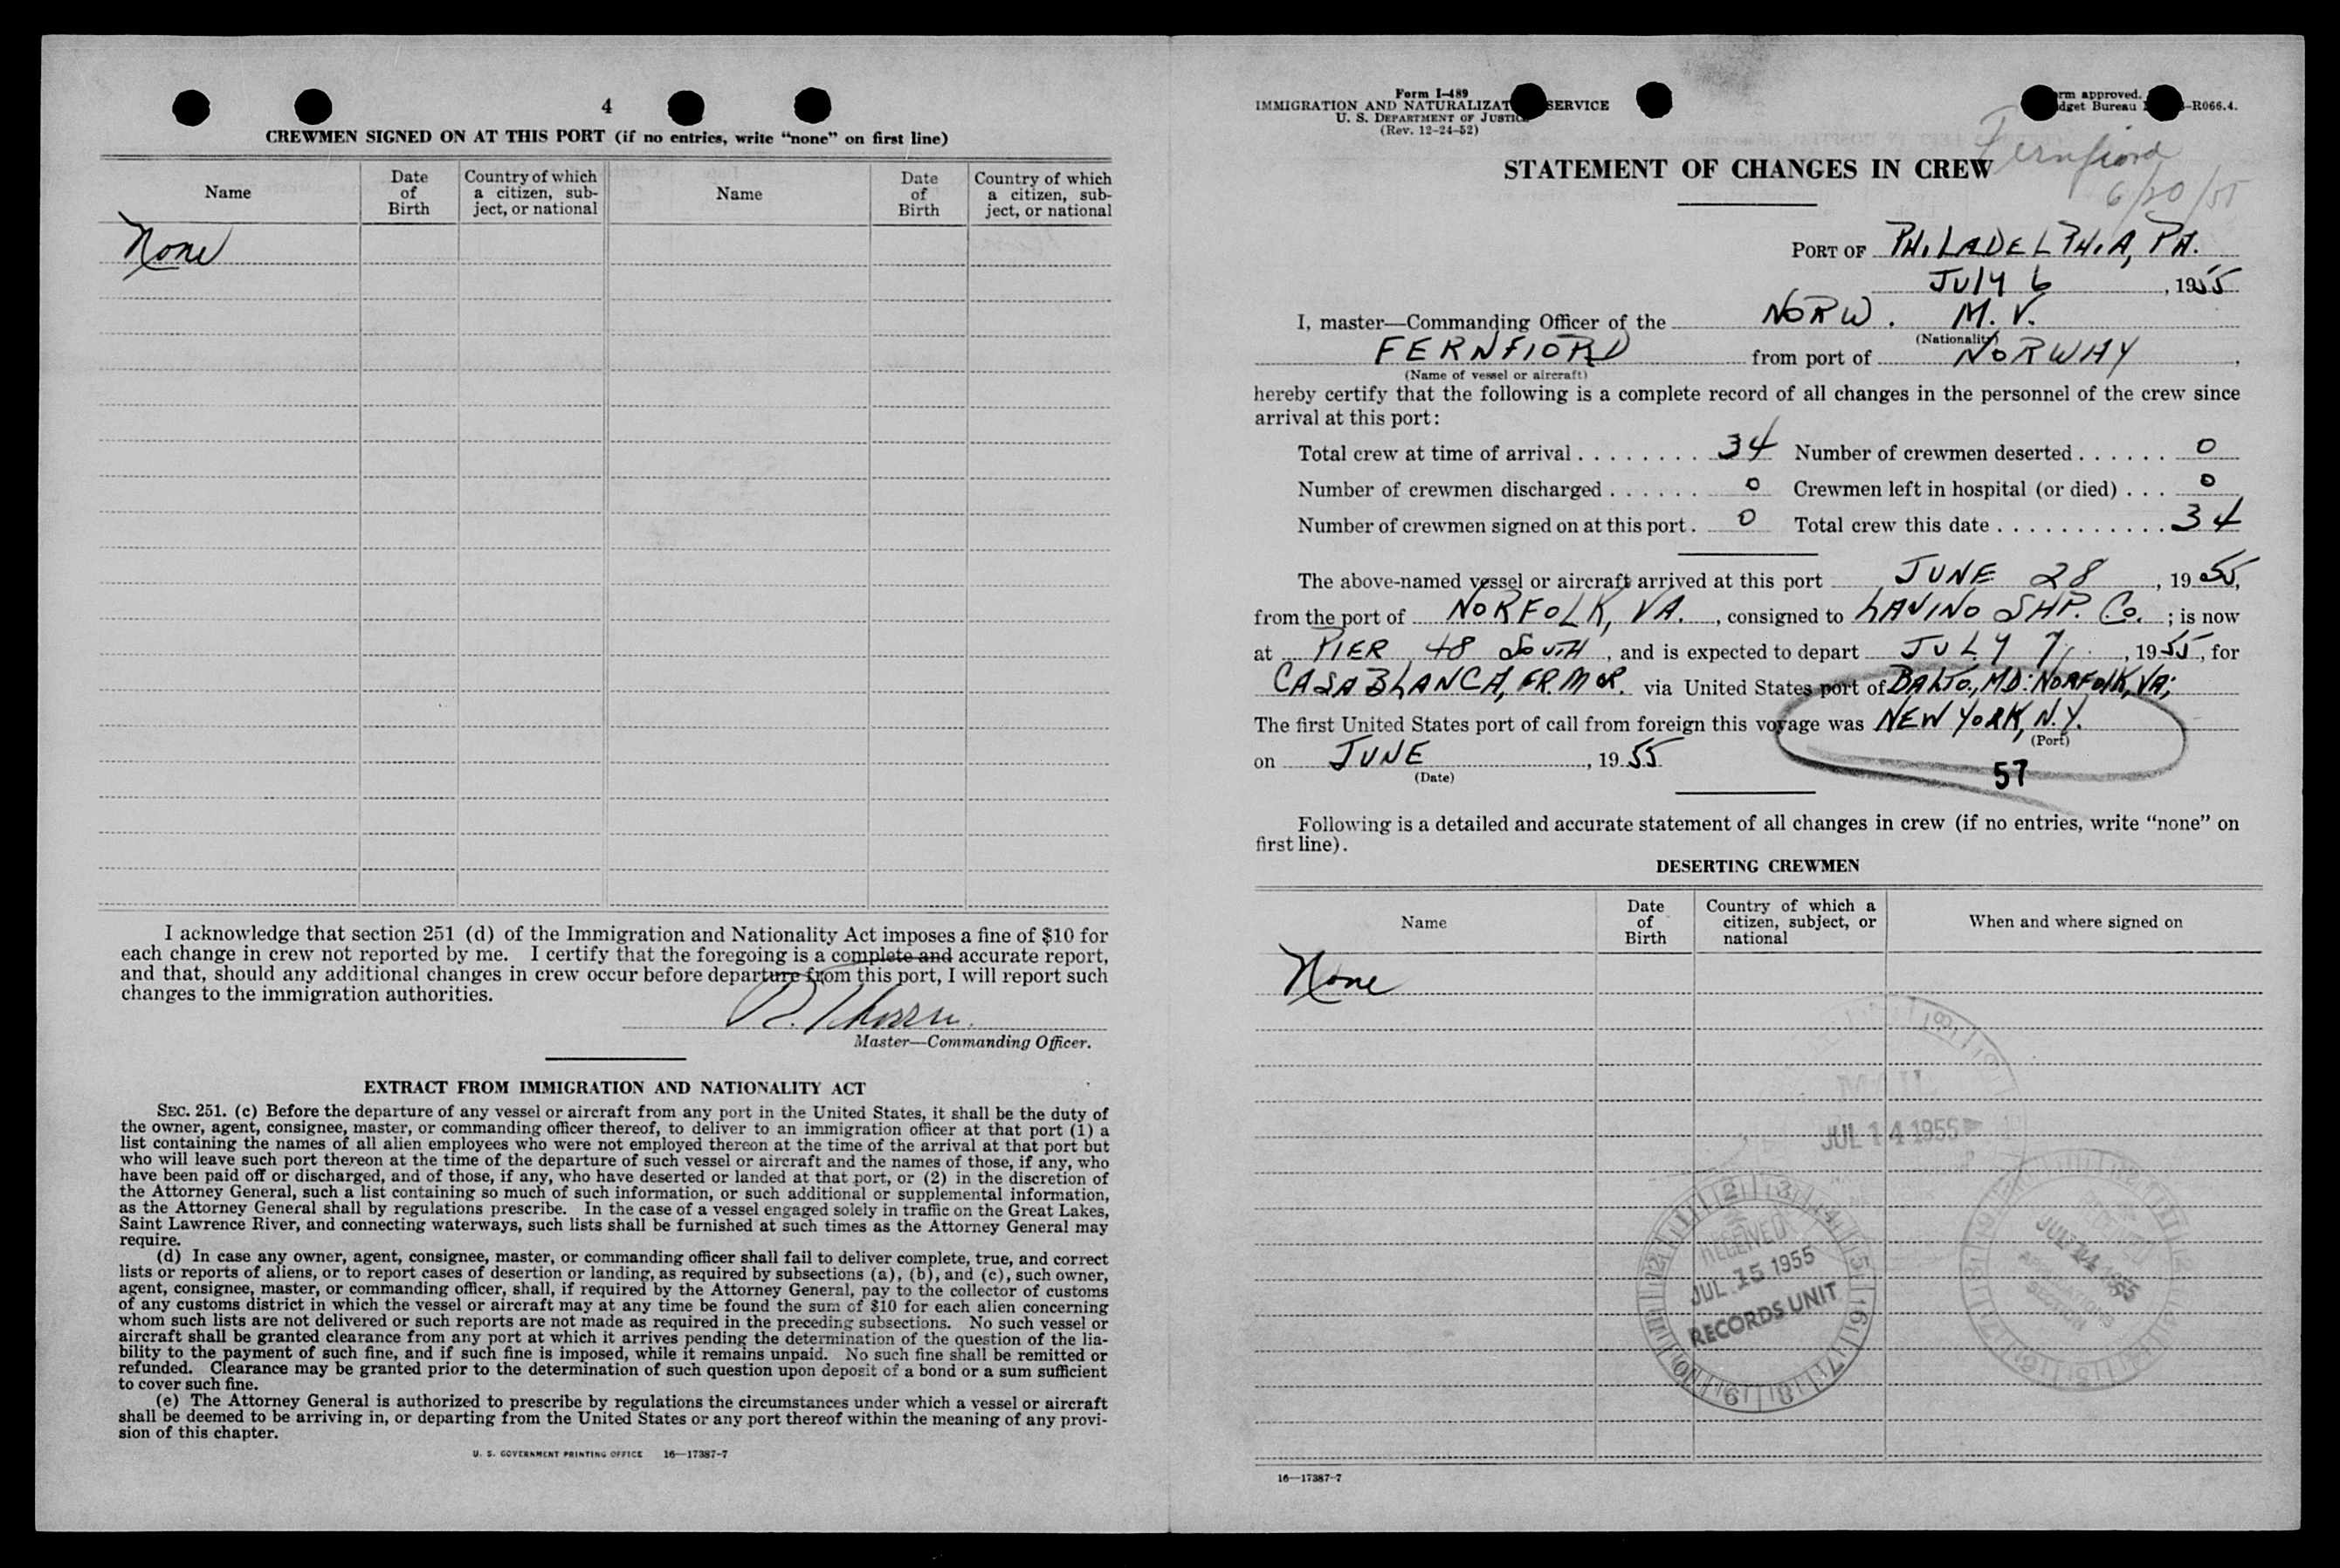 4
CREWMEN SIGNED ON AT THIS PORT (if no entries, write “none” on first line)
Name
Date of Birth
Country of which a citizen, subject, or national
Name
Date of Birth
Country of which a citizen, subject, or national
None
I acknowledge that section 251 (d) of the Immigration and Nationality Act imposes a fine of $10 for
each change in crew not reported by me. I certify that the foregoing is a complete and accurate report,
and that, should any additional changes in crew occur before departure from this port, I will report such
changes to the immigration authorities.
Master—Commanding Officer.
EXTRACT FROM IMMIGRATION AND NATIONALITY ACT
SEC. 251. (c) Before the departure of any vessel or aircraft from any port in the United States, it shall be the duty of
the owner, agent, consignee, master, or commanding officer thereof, to deliver to an immigration officer at that port (1) a
list containing the names of all alien employees who were not employed thereon at the time of the arrival at that port but
who will leave such port thereon at the time of the departure of such vessel or aircraft and the names of those, if any, who
have been paid off or discharged, and of those, if any, who have deserted or landed at that port, or (2) in the discretion of
the Attorney General, such a list containing so much of such information, or such additional or supplemental information,
as the Attorney General shall by regulations prescribe. In the case of a vessel engaged solely in traffic on the Great Lakes,
Saint Lawrence River, and connecting waterways, such lists shall be furnished at such times as the Attorney General may
require.
(d) In case any owner, agent, consignee, master, or commanding officer shall fail to deliver complete, true, and correct
lists or reports of aliens, or to report cases of desertion or landing, as required by subsections (a), (b), and (c), such owner,
agent, consignee, master, or commanding officer, shall, if required by the Attorney General, pay to the collector of customs
of any customs district in which the vessel or aircraft may at any time be found the sum of $10 for each alien concerning
whom such lists are not delivered or such reports are not made as required in the preceding subsections. No such vessel or
aircraft shall be granted clearance from any port at which it arrives pending the determination of the question of the lia-
bility to the payment of such fine, and if such fine is imposed, while it remains unpaid. No such fine shall be remitted or
refunded. Clearance may be granted prior to the determination of such question upon deposit of a bond or a sum sufficient
to cover such fine.
(e) The Attorney General is authorized to prescribe by regulations the circumstances under which a vessel or aircraft
shall be deemed to be arriving in, or departing from the United States or any port thereof within the meaning of any provi-
sion of this chapter.
U. S. GOVERNMENT PRINTING OFFICE 16—17387-7
Form I-489
IMMIGRATION AND NATURALIZAT SERVICE
U. S. DEPARTMENT OF JUSTICE
(Rev. 12-24-52)
rm approved.
dget Bureau -R066.4.
Fernfiord
6/20/55
STATEMENT OF CHANGES IN CREW
PORT OF PHILADELPHIA, PA.
JULY 6, 1955
I, master—Commanding Officer of the NORW. M.V.
(Nationality)
FERNFIORD from port of NORWAY,
(Name of vessel or aircraft)
hereby certify that the following is a complete record of all changes in the personnel of the crew since
arrival at this port:
Total crew at time of arrival ........ 34 Number of crewmen deserted ...... 0
Number of crewmen discharged ...... 0 Crewmen left in hospital (or died) ... 0
Number of crewmen signed on at this port. 0 Total crew this date ........... 34
The above-named vessel or aircraft arrived at this port JUNE 28, 1955,
from the port of NORFOLK, VA., consigned to LAVINO SHP. Co.; is now
at PIER 48 SOUTH, and is expected to depart JULY 7, 1955, for
CASABLANCA, FR. MOR. via United States port of BALTO., MD. NORFOLK, VA;
The first United States port of call from foreign this voyage was NEW YORK, N.Y.
(Port)
on JUNE, 1955
(Date)
57
Following is a detailed and accurate statement of all changes in crew (if no entries, write “none” on
first line).
DESERTING CREWMEN
Name
Date of Birth
Country of which a citizen, subject, or national
When and where signed on
None
MAIL
JUL 14 1955
RECEIVED
JUL 15 1955
RECORDS UNIT
16—17387-7